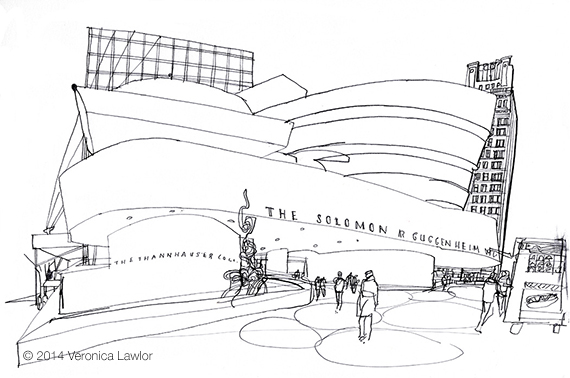 THE SOLOMON R GUGGENHEIM
THE THANNHAUSER COL.
© 2014 Veronica Lawlor